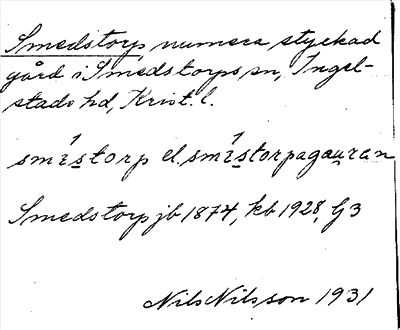 Smedstorp, numera styckad
gård i Smedstorps sn, Ingel-
stads hd, Krist. l.
smi̱storp el. smi̱storpagaụran
Smedstorp jb 1874, kb 1928, G3
Nils Nilsson 1931